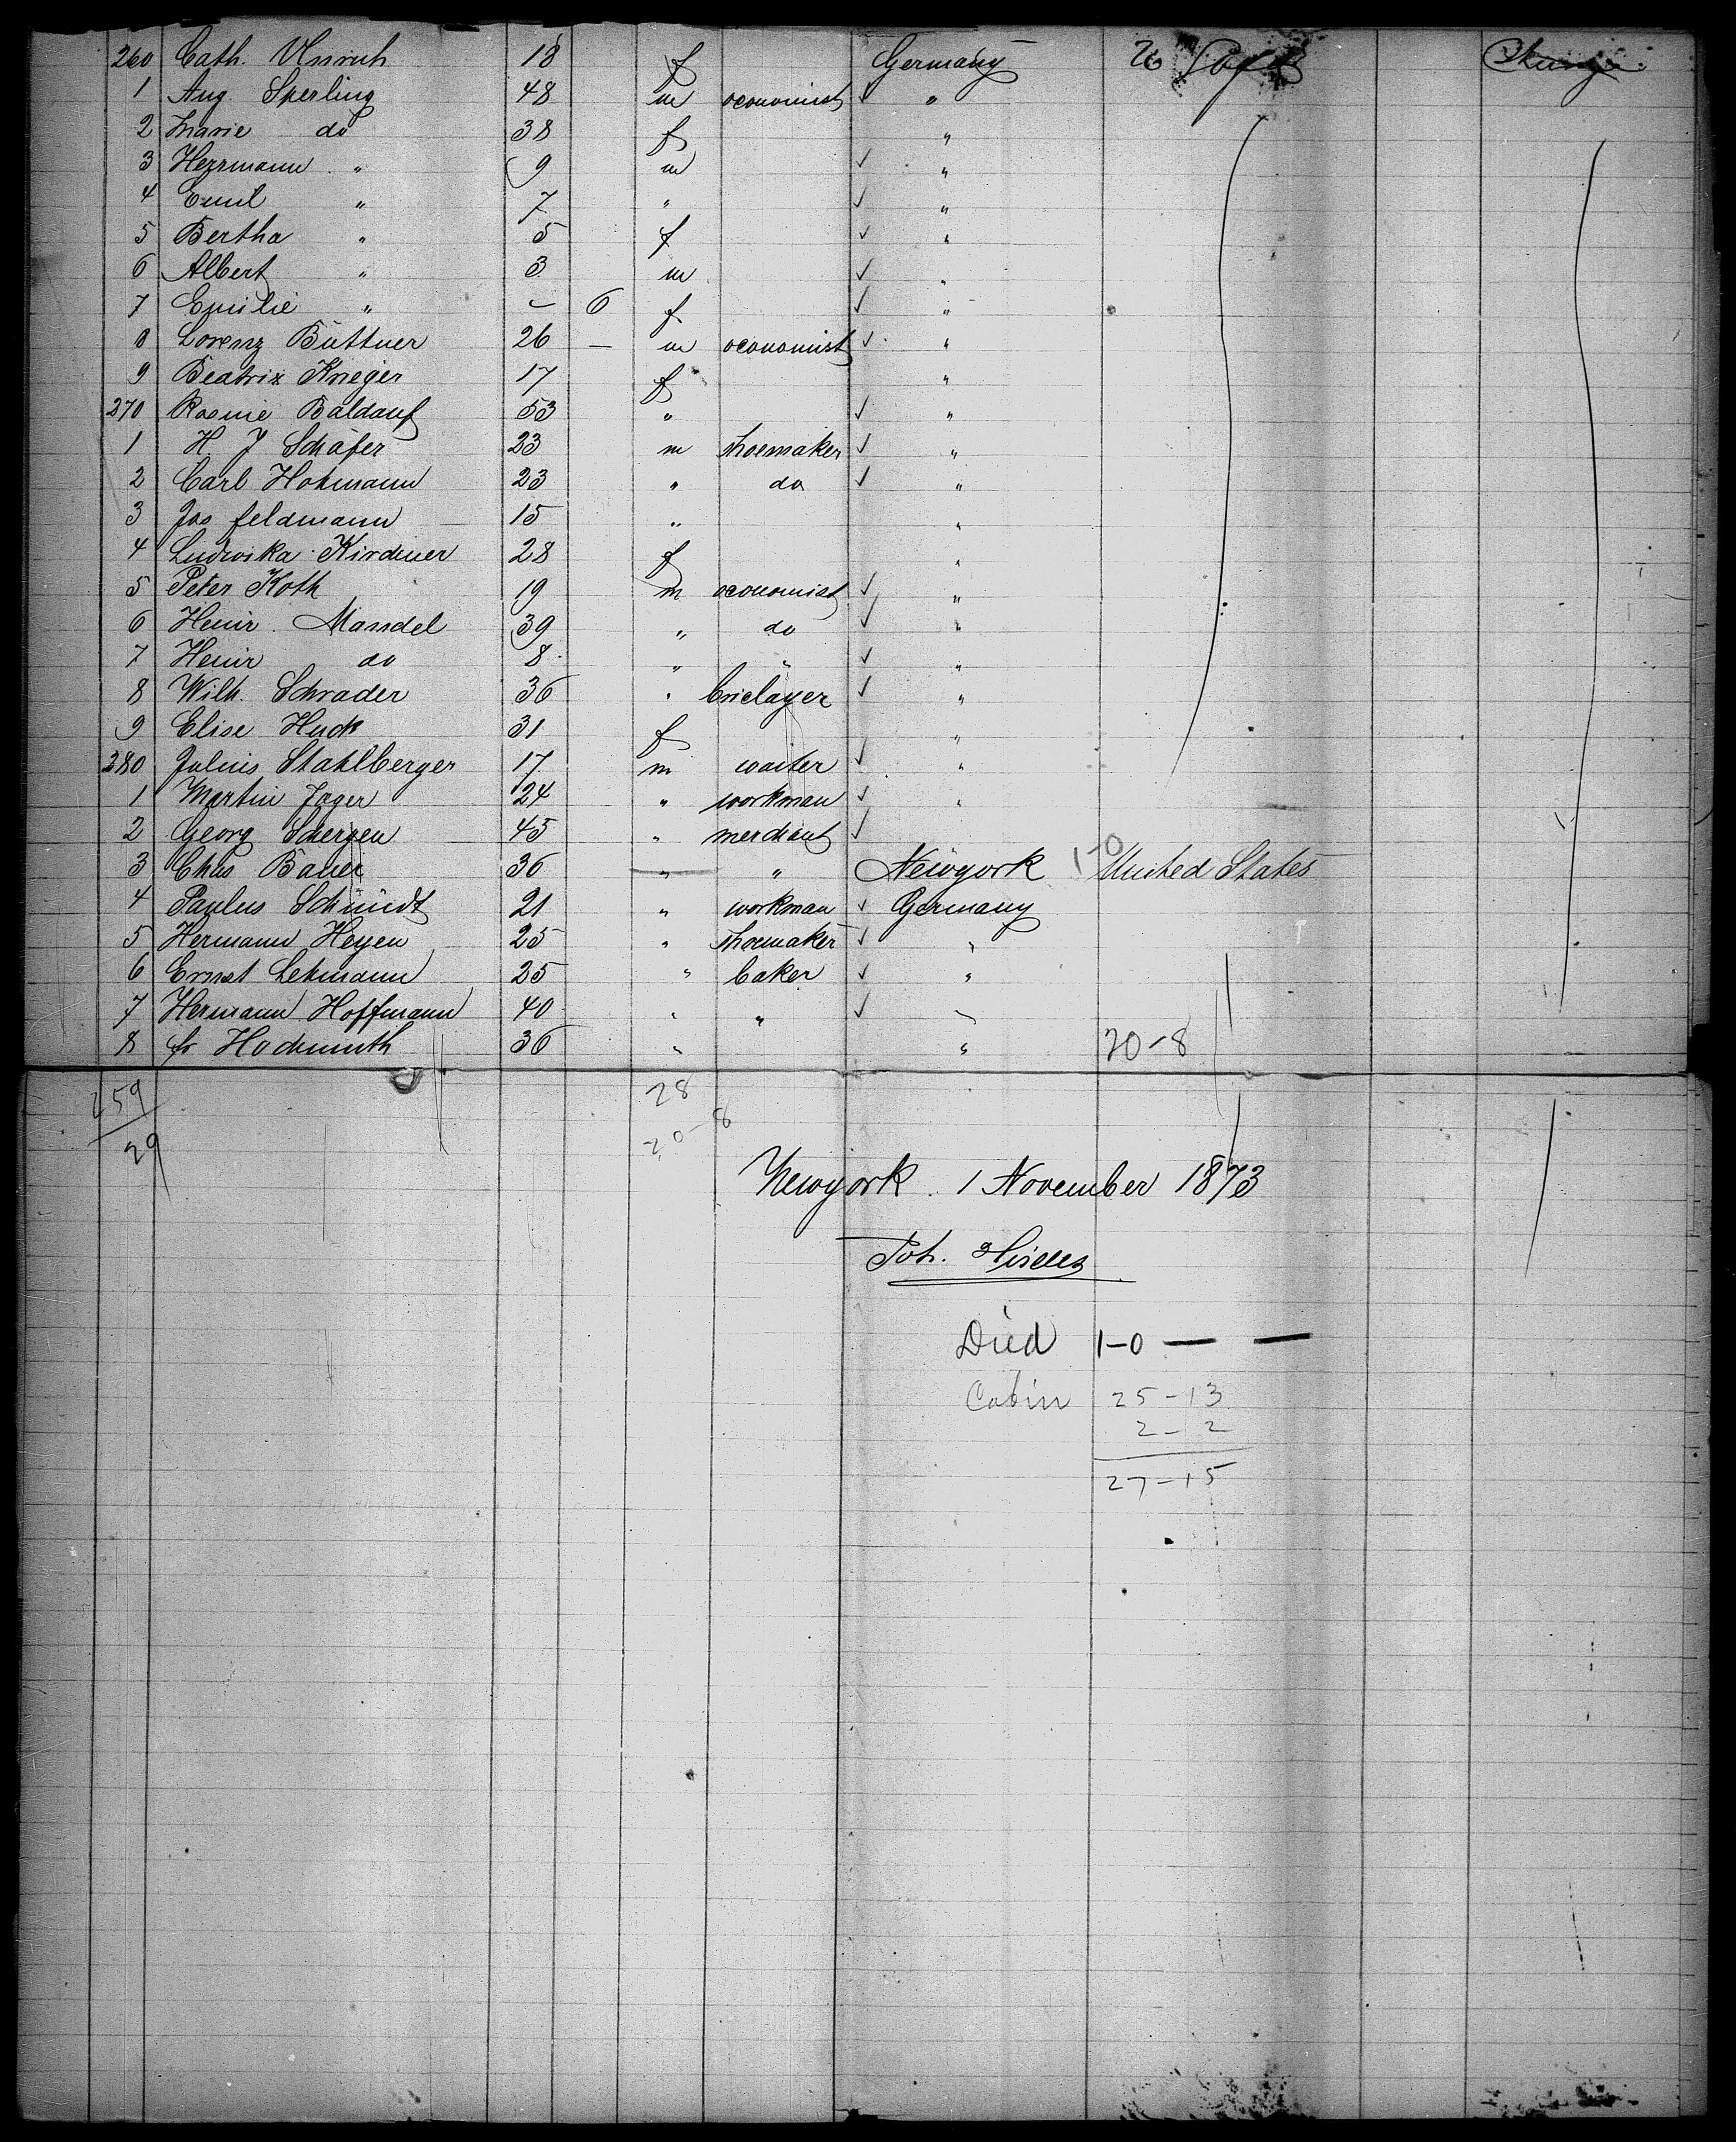 260 Cath. Unruh 18 f Germany
1 Aug. Sperling 48 m oeconomist ✓ "
2 Marie do 38 f "
3 Herrmann " 9 m ✓ "
4 Emil " 7 " ✓ "
5 Bertha " 5 f ✓ "
6 Albert " 3 m ✓ "
7 Emilie " - 6 f ✓ "
8 Lorenz Büttner 26 — m oeconomist ✓ "
9 Beatrix Krieger 17 f "
270 Rosine Baldauf 53 " ✓ "
1 H. J Schäfer 23 m shoemaker ✓ "
2 Carl Hohmann 23 " do ✓ "
3 Jos feldmann 15 " "
4 Ludwika Kirchner 28 f "
5 Peter Koth 19 m oeconomist ✓ "
6 Heinr. Mandel 39 " do ✓ "
7 Heinr do 8 " " ✓ "
8 Wilh. Schrader 36 " bricklayer ✓ "
9 Elise Huck 31 f "
280 Julius Stahlberger 17 m waiter ✓ "
1 Martin Jager 24 " workman ✓ "
2 Georg Schergen 45 " merchant ✓
3 Chas Bauer 36 " " Newyork 1-0 United States
4 Paulus Schmidt 21 " workman ✓ Germany
5 Hermann Heyen 25 " shoemaker ✓ "
6 Ernst Lehmann 25 " baker ✓ "
7 Hermann Hoffmann 40 " " ✓ "
8 fr Hochmuth 36 " " 20-8
259 28
29 20-8
Newyork. 1 November 1873
Joh.
Died 1-0 — —
Cabin 25-13
2-2
27-15